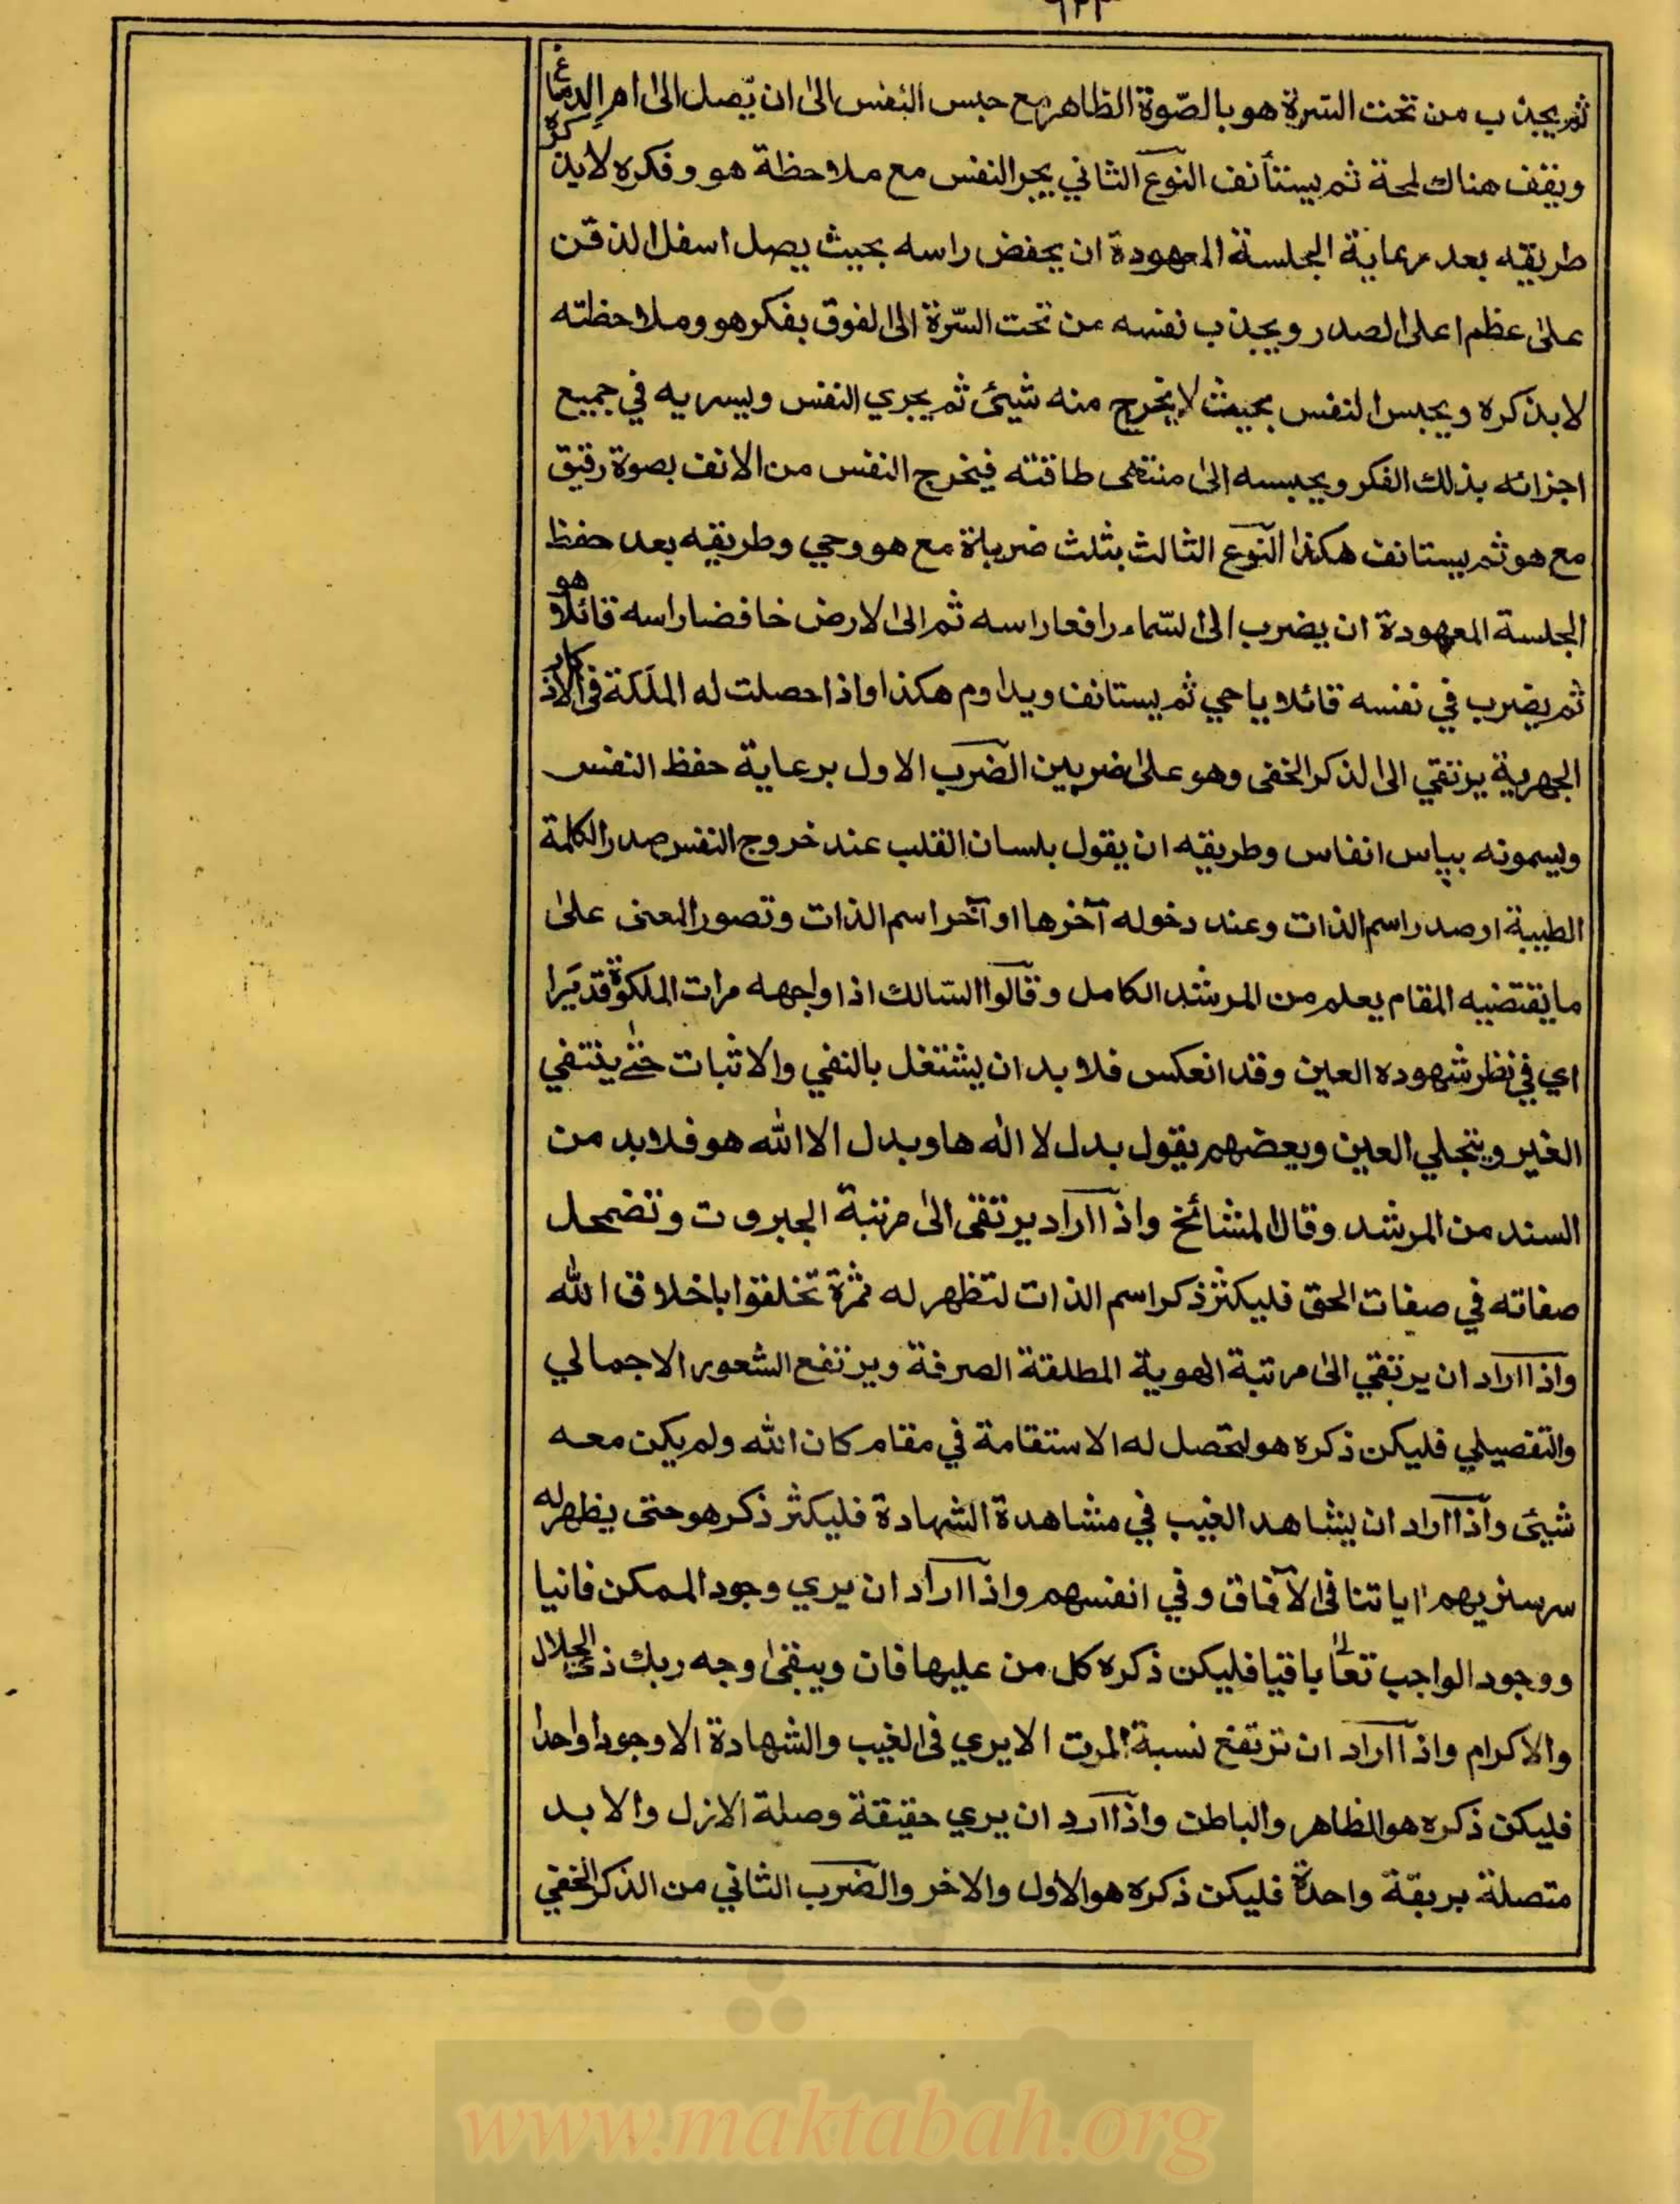 ثم يجذب من تحت السرة هو بالصّوة الظاهر مع حبس النفس الىٰ ان يّصل الىٰ ام الدماغ
ويقف هناك لمحة ثم يستأنف النوع الثاني بجر النفس مع ملاحظة هو وفكره لابذكره
طريقه بعد رعاية الجلسة المعهودة ان يخفض راسه بحيث يصل اسفل الذقن
علىٰ عظم اعلى الصدر ويجذب نفسه من تحت السّرة الى الفوق بفكر هو وملاحظته
لابذكره ويحبس النفس بحيث لا يخرج منه شيئ ثم يجري النفس ويسريه في جميع
اجزائه بذلك الفكر ويحبسه الىٰ منتهى طاقته فيخرج النفس من الانف بصوة رقيق
مع هو ثم يستانف هكذا النوع الثالث بثلث ضرباة مع هو وحي وطريقه بعد حفظ
الجلسة المعهودة ان يضرب الى السّماء رافعا راسه ثم الى الارض خافضا راسه قائلا هو
ثم يضرب في نفسه قائلا يا حي ثم يستانف ويداوم هكذا واذا حصلت له الملكة في الاذكار
الجهرية يرتقي الى الذكر الخفى وهو علىٰ ضربين الضرب الاول برعاية حفظ النفس
ويسمونه بپاس انفاس وطريقه ان يقول بلسان القلب عند خروج النفس صدر الكلمة
الطيبة او صدر اسم الذات وعند دخوله آخرها او آخر اسم الذات وتصور المعنى علىٰ
ما يقتضيه المقام يعلم من المرشد الكامل وقالوا السالك اذا واجهه مرات الملكوة قد يَرا
اي في نظر شهوده العين وقد انعكس فلا بد ان يشتغل بالنفي والاثبات حتّٰے ينتفي
الغير ويتجلي العين وبعضهم يقول بدل لا اله ها وبدل الا الله هو فلابد من
السند من المرشد وقال المشائخ واذا اراد يرتقى الىٰ مرتبة الجبروت وتضمحل
صفاته في صفات الحق فليكثر ذكر اسم الذات لتظهر له ثمرة تخلقوا باخلاق الله
واذا اراد ان يرتقي الىٰ مرتبة الهوية المطلقة الصرفة ويرتفع الشعور الاجمالي
والتفصيلي فليكن ذكره هو لتحصل له الاستقامة في مقام كان الله ولم يكن معه
شيئ واذا اراد ان يشاهد الغيب في مشاهدة الشهادة فليكثر ذكر هو حتى يظهر له
سر سنريهم اياتنا فى الآفاق وفي انفسهم واذا اراد ان يري وجود الممكن فانيا
ووجود الواجب تعالٰى باقيا فليكن ذكره كل من عليها فان ويبقىٰ وجه ربك ذى الجلال
والاكرام واذا اراد ان ترتفع نسبة المرت الا يري فى الغيب والشهادة الا وجودا واحدا
فليكن ذكره هو الظاهر والباطن واذا ارد ان يري حقيقة وصلة الازل والابد
متصلة بريقة واحدة فليكن ذكره هو الاول والاخر والضرب الثاني من الذكر الخفي
www.maktabah.org